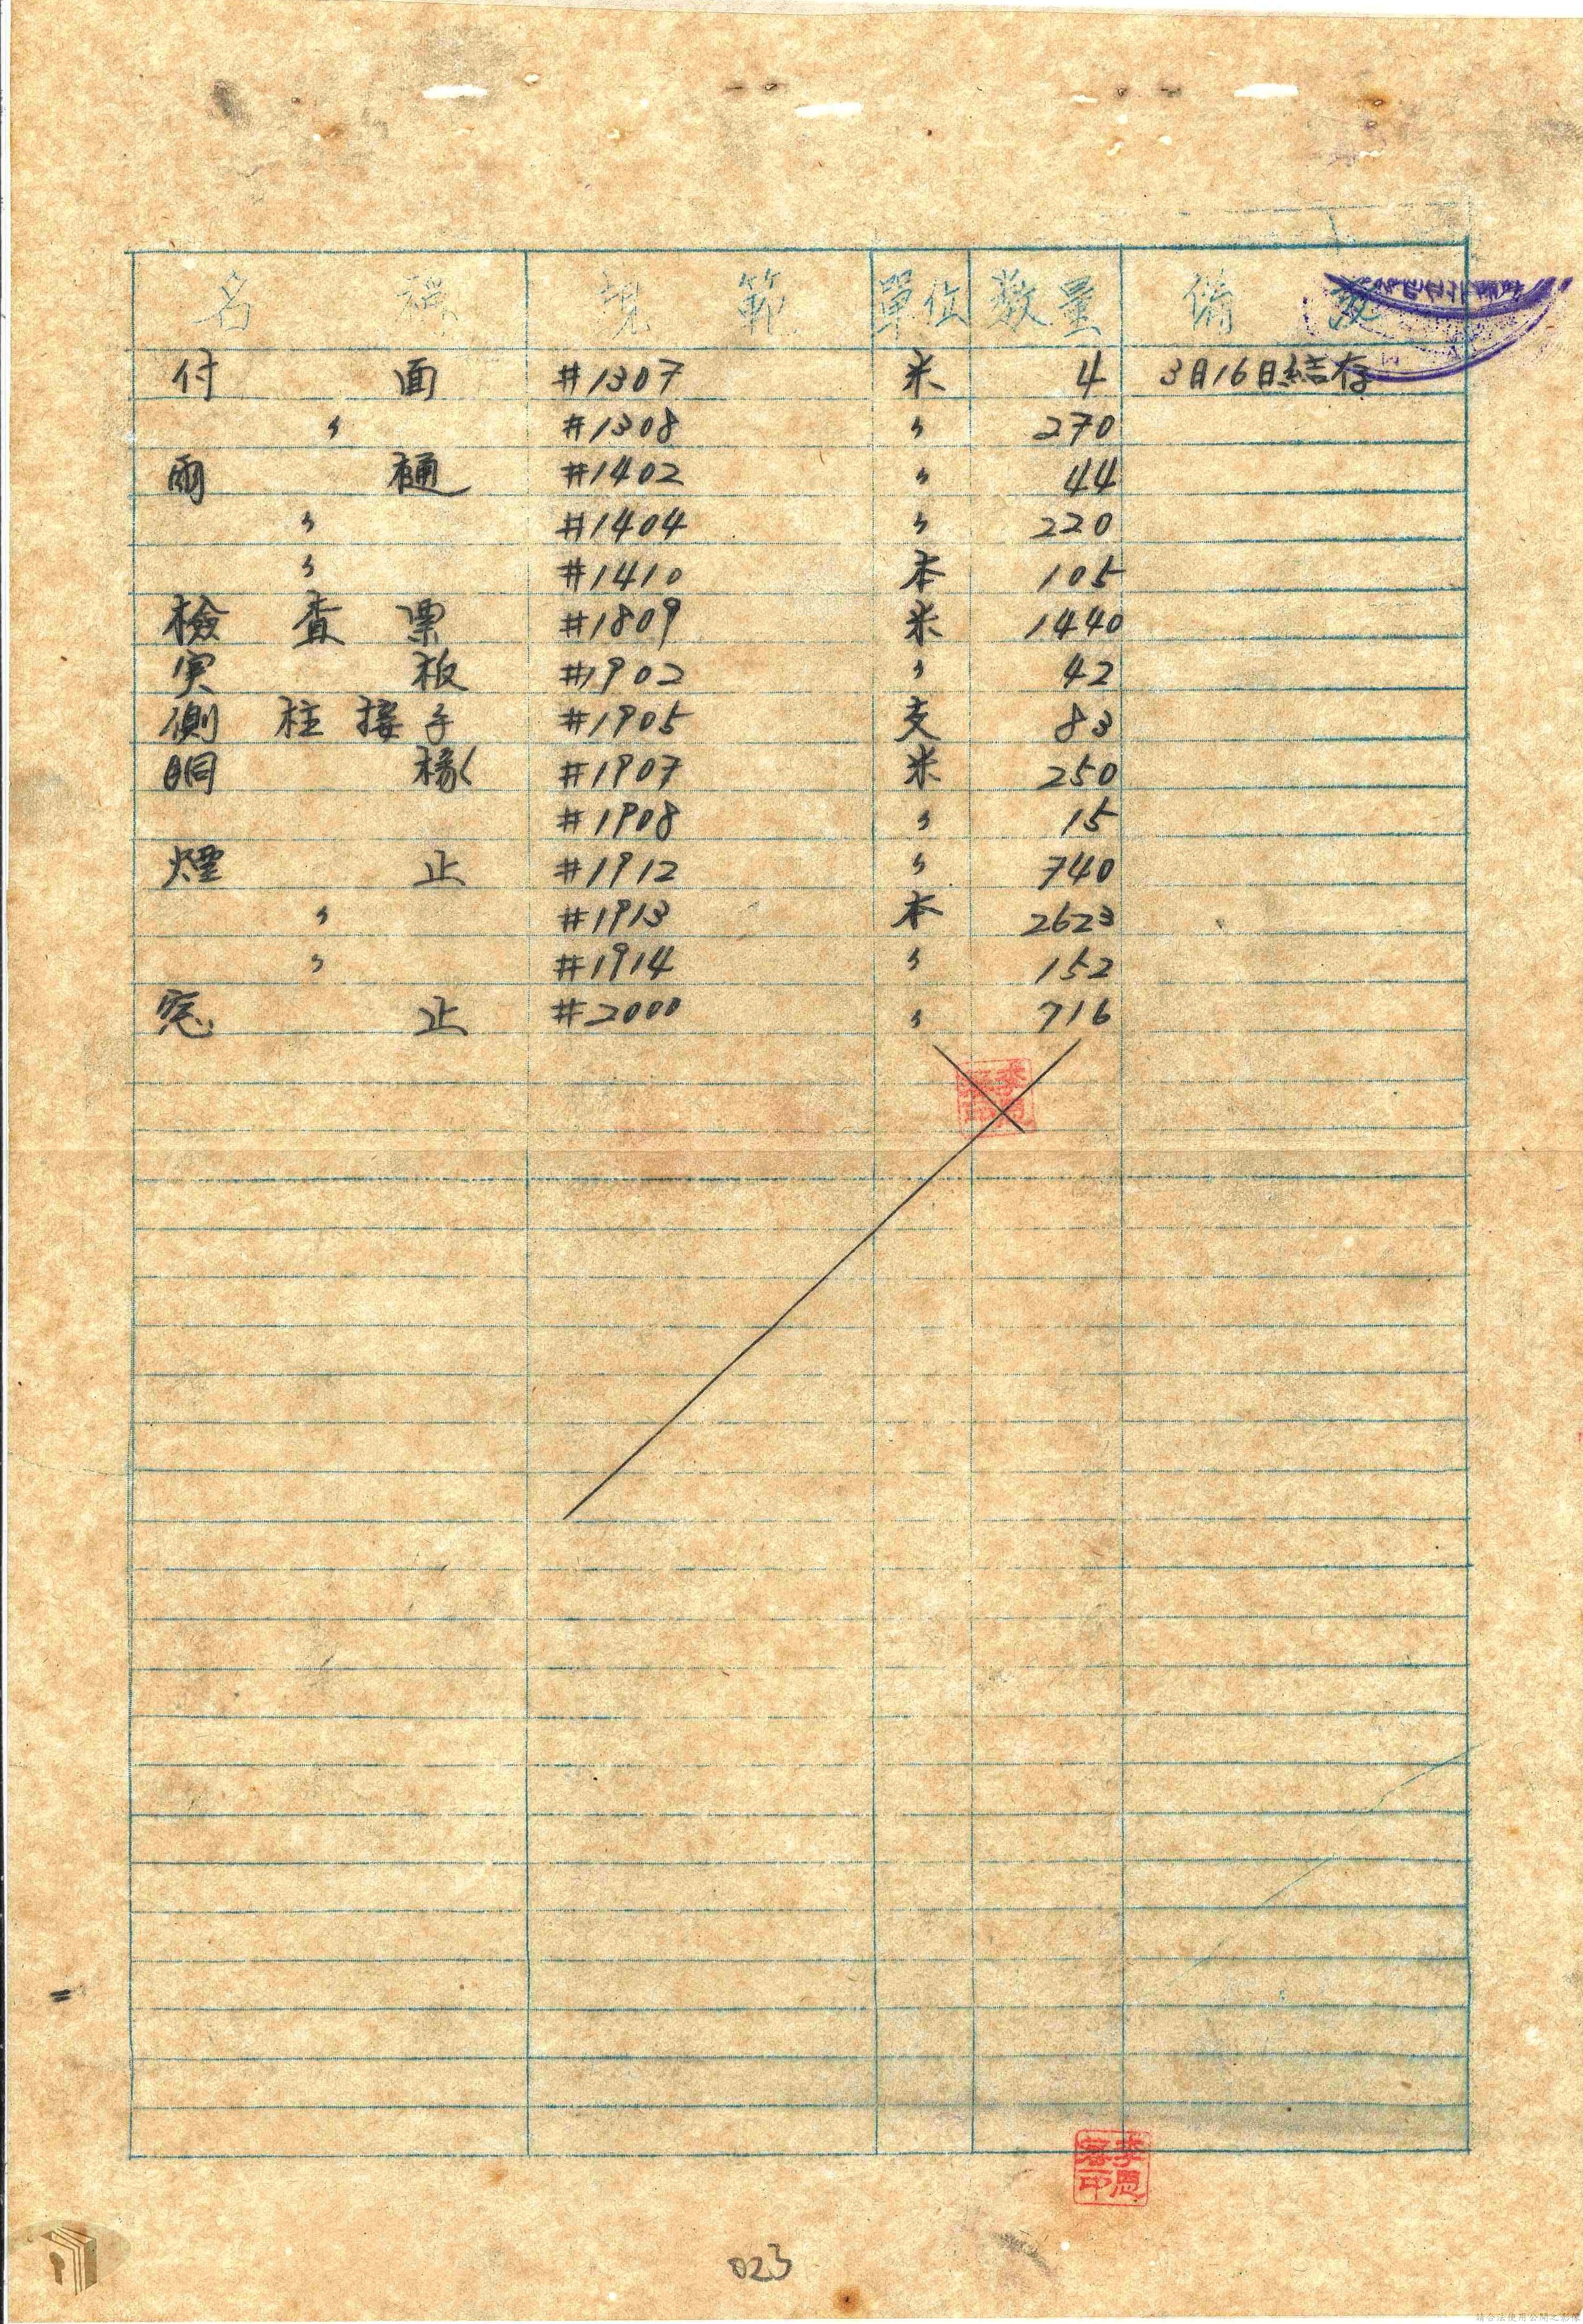 名 稱 規 範 單位 数量 備 考
付 面 #1307 米 4 3月16日結存
〃 #1308 〃 270
雨 樋 #1402 〃 44
〃 #1404 〃 220
〃 #1410 本 105
檢 查 票 #1809 米 1440
実 板 #1902 〃 42
側 柱 接 子 #1905 支 83
胴 椽 #1907 米 250
#1908 〃 15
煙 止 #1912 〃 740
〃 #1913 本 2623
〃 #1914 〃 152
窓 止 #2000 〃 716
023